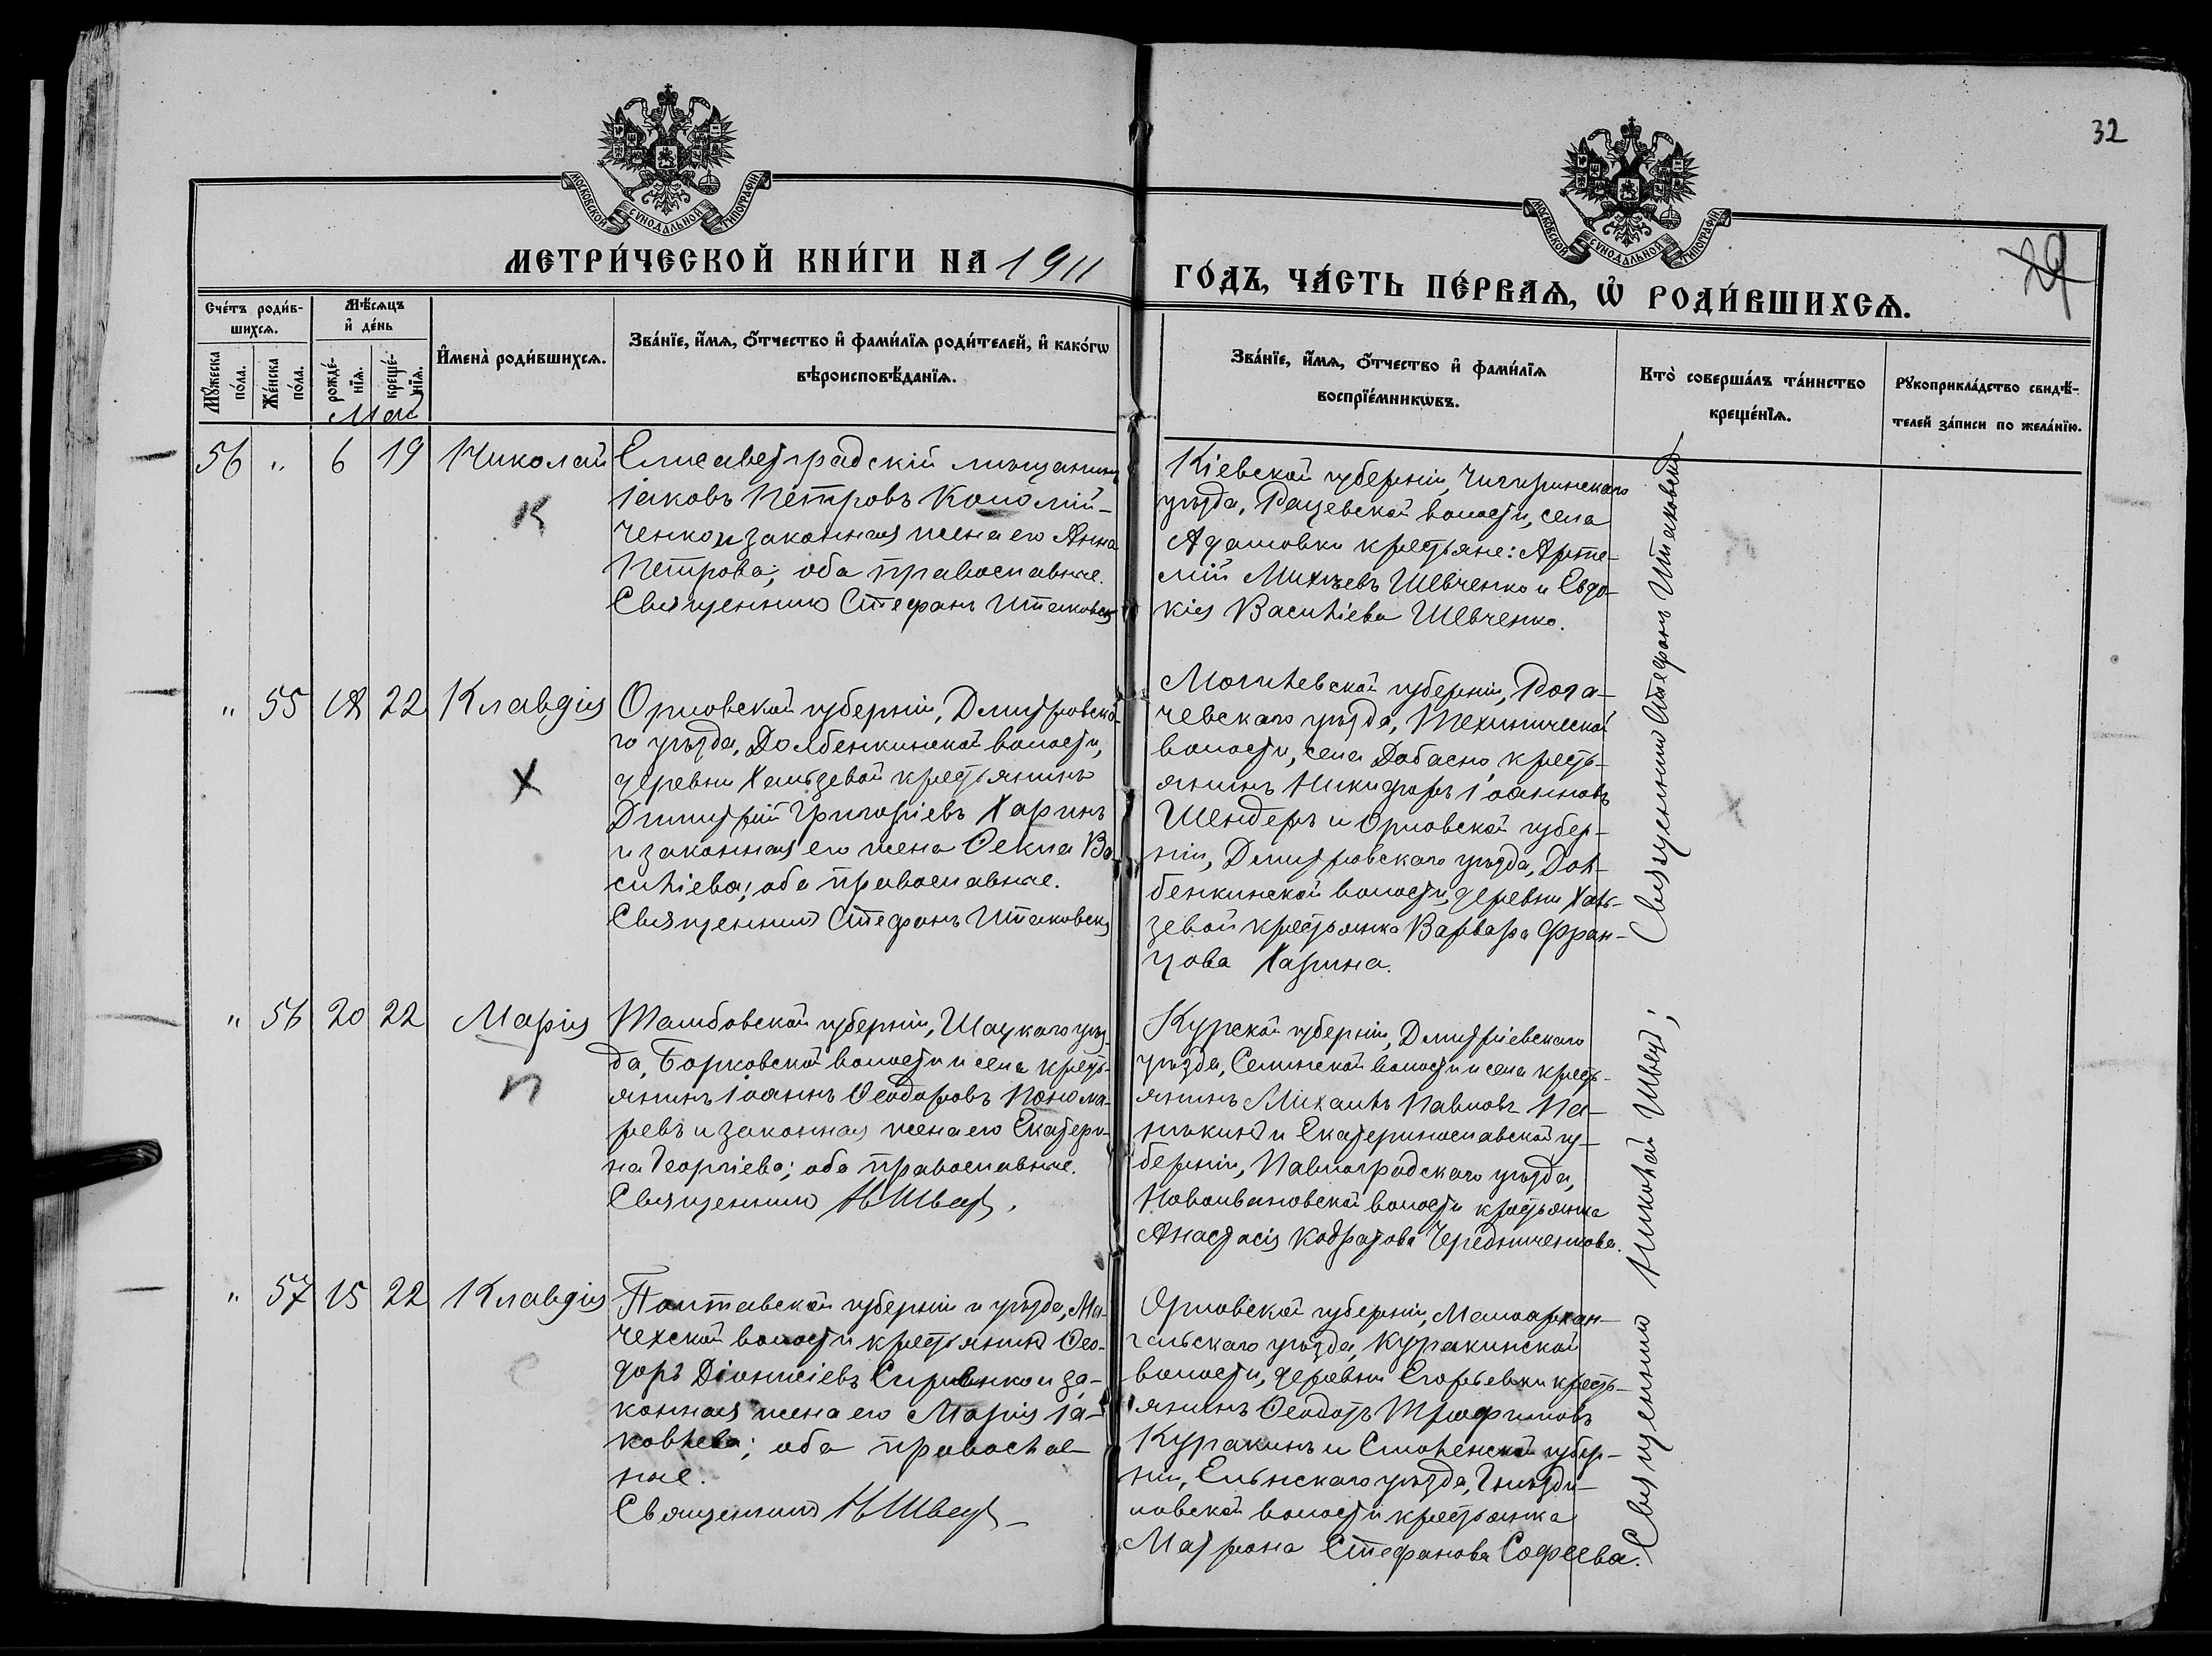 32
МОСКОВСКОЙ СѴНОДАЛЬНОЙ ТИПОГРАФІИ
МОСКОВСКОЙ СѴНОДАЛЬНОЙ ТИПОГРАФІИ
МЕТРИ́ЧЕСКОЙ КНИ́ГИ НА 1911
ГО́ДЪ, ЧА́СТЬ ПЕ́РВАѦ, Ѡ҆ РОДИ́ВШИХСѦ.
29
Сче́тъ роди́в-
шихсѧ.
Мꙋ́жеска
по́ла.
Же́нска
по́ла.
Мѣ́сѧцъ
и҆ де́нь
рожде́-
нїѧ.
креще́-
нїѧ.
Май
И҆мена̀ роди́вшихсѧ.
Зва́нїе, и҆́мѧ, ѻ҆́тчество и҆ фами́лїѧ роди́телей, и҆ како́гѡ
вѣроисповѣ́данїѧ.
Зва́нїе, и҆́мѧ, ѻ҆́тчество и҆ фами́лїѧ
воспрїе́мникѡвъ.
Кто̀ соверша́лъ та́инство
креще́нїѧ.
Рꙋкоприкла́дство свидѣ́-
телей за́писи по жела́нїю.
56 " 6 19 Николай
К
Елисаветградскій мѣщанинъ
Іаковъ Петровъ Коломій-
ченко и законная жена его Анна
Петрова; оба православные.
Священникъ Стефанъ Итаковскій
Кіевской губерніи, Чигиринскаго
уѣзда, Рацевской волости, села
Адамовки крестьяне: Арте-
мій Михѣевъ Шевченко и Евдо-
кія Васильева Шевченко.
" 55 18 22 Клавдія
Х
Орловской губерніи, Дмитровска-
го уѣзда, Долбенкинской волости,
деревни Хальзевой крестьянинъ
Димитрій Григоріевъ Харинъ
и законная его жена Ѳекла Ва-
сильева; оба православные.
Священникъ Стефанъ Итаковскій
Могилевской губерніи, Рога-
чевскаго уѣзда, Тихиничской
волости, села Добасно, кресть-
янинъ Никифоръ Іоанновъ
Шендеръ и Орловской губер-
ніи, Дмитровскаго уѣзда, Дол-
бенкинской волости, деревни Халь-
зевой крестьянка Варвара Фран-
цова Харина.
Священникъ Стефанъ Итаковскій
" 56 20 22 Марія
П
Тамбовской губерніи, Шацкаго уѣз-
да, Борковской волости и села кресть-
янинъ Іоаннъ Ѳеодоровъ Понома-
ревъ и законная жена его Екатери-
на Георгіева; оба православные.
Священникъ Н Швец
Курской губерніи, Дмитріевскаго
уѣзда, Селинской волости и села кресть-
янинъ Михаилъ Павловъ Па-
нькинъ и Екатеринославской гу-
берніи, Павлоградскаго уѣзда,
Новоивановской волости крестьянка
Анастасія Кодратова Чередниченкова.
" 57 15 22 Клавдія
С
Полтавской губерніи и уѣзда, Ма-
чехской волости крестьянинъ Ѳео-
доръ Діонисіевъ Сиренко и за-
конная жена его Марія Іа-
ковлева; оба православ-
ные.
Священникъ Н Швец
Орловской губерніи, Малоархан-
гельскаго уѣзда, Куракинской
волости, деревни Егорьевки кресть-
янинъ Ѳеодотъ Трофимовъ
Куракинъ и Смоленской губер-
ніи, Ельнскаго уѣзда, Гнѣзди-
ловской волости крестьянка
Матрона Стефанова Софеева.
Священникъ Николай Швец;